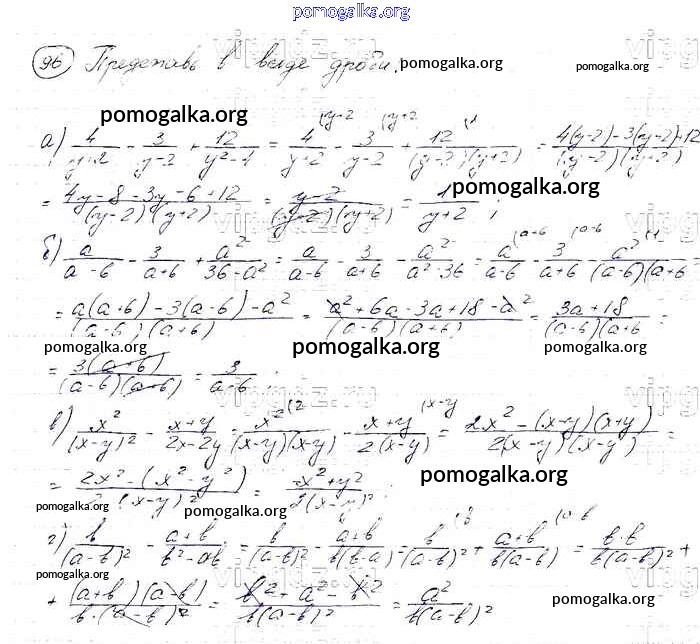 pomogalka.org
96 Представь в виде дроби. pomogalka.org pomogalka.org
pomogalka.org
а) 4/(y+2) - 3/(y-2) + 12/(y²-4) = 4/(y+2) - 3/(y-2) + 12/((y-2)(y+2)) = (4(y-2)-3(y+2)+12)/((y-2)(y+2))
pomogalka.org
= (4y-8-3y-6+12)/((y-2)(y+2)) = (y-2)/((y-2)(y+2)) = 1/(y+2);
б) a/(a-6) - 3/(a+6) + a²/(36-a²) = a/(a-6) - 3/(a+6) - a²/(a²-36) = a/(a-6) - 3/(a+6) - a²/((a-6)(a+6)) =
= (a(a+6)-3(a-6)-a²)/((a-6)(a+6)) = (a²+6a-3a+18-a²)/((a-6)(a+6)) = (3a+18)/((a-6)(a+6)) =
pomogalka.org pomogalka.org pomogalka.org
= 3(a+6)/((a-6)(a+6)) = 3/(a-6);
в) x²/(x-y)² - (x+y)/(2x-2y) = x²/((x-y)(x-y)) - (x+y)/(2(x-y)) = (2x²-(x-y)(x+y))/(2(x-y)(x-y)) =
pomogalka.org
= (2x²-(x²-y²))/(2(x-y)²) = (x²+y²)/(2(x-y)²);
pomogalka.org pomogalka.org
г) b/(a-b)² - (a+b)/(b²-ab) = b/(a-b)² - (a+b)/(b(b-a)) = b/(a-b)² + (a+b)/(b(a-b)) = b·b/(b(a-b)²) +
pomogalka.org
+ (a+b)(a-b)/(b·(a-b)²) = (b²+a²-b²)/(b(a-b)²) = a²/(b(a-b)²)
pomogalka.org pomogalka.org